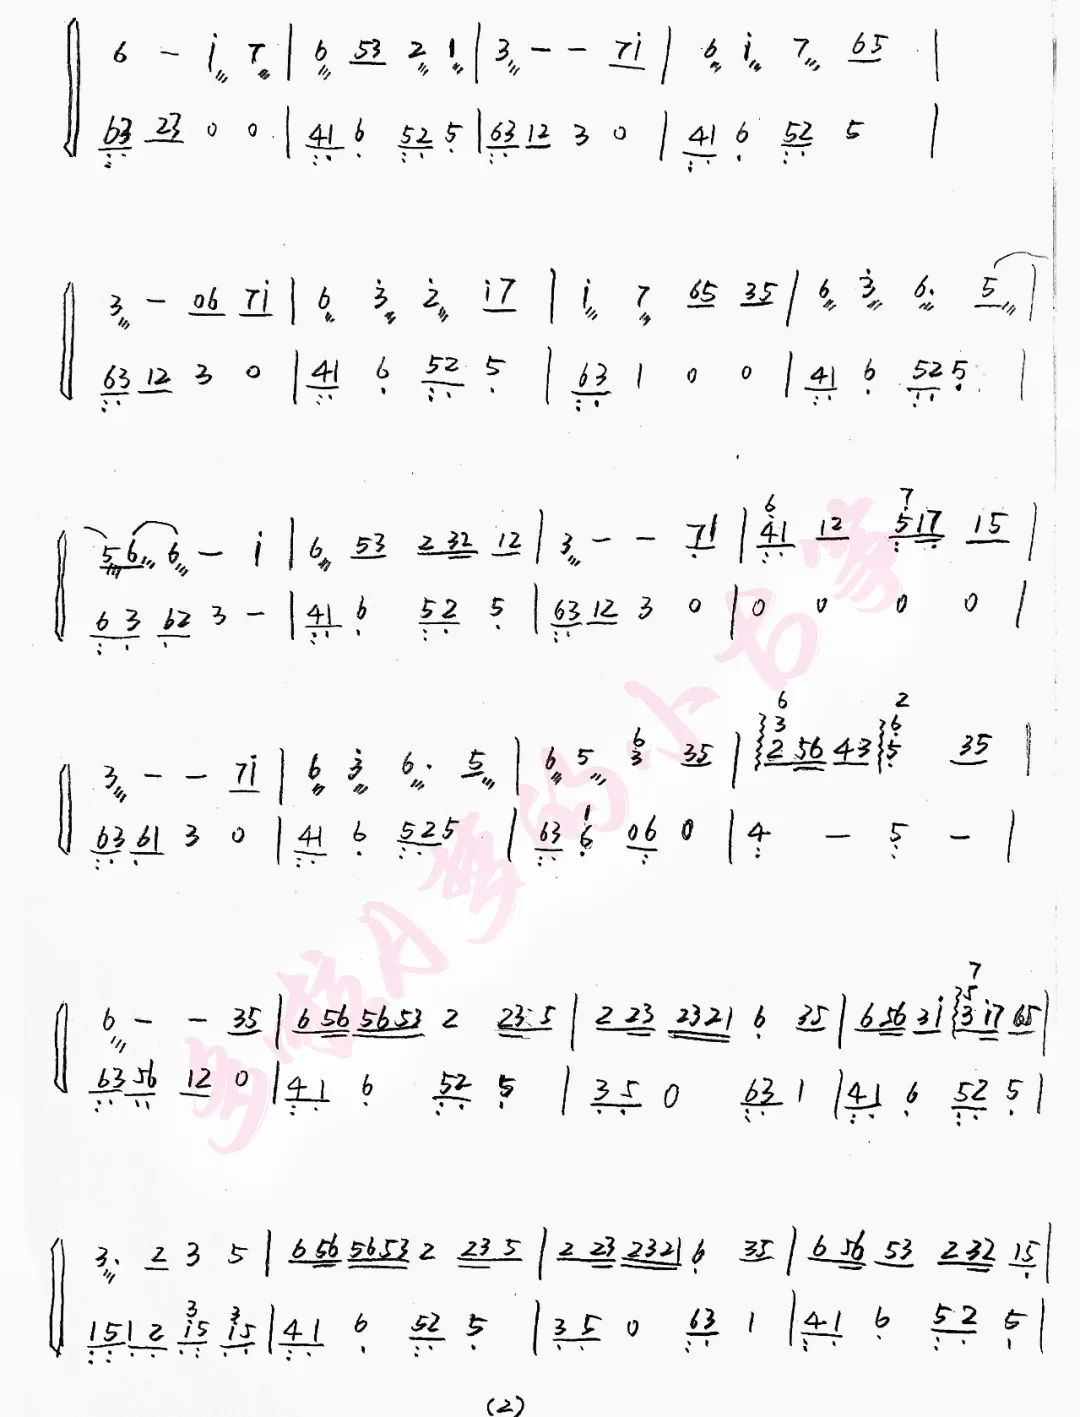 6 - i 7 | 6 53 2 1 | 3 - - 7i | 6 i 7 65 |
63 23 0 0 | 41 6 52 5 | 63 12 3 0 | 41 6 52 5 |
3 - 06 7i | 6 3 2 i7 | i 7 65 35 | 6 3 6. 5 |
63 12 3 0 | 41 6 52 5 | 63 1 0 0 | 41 6 52 5 |
6 7
56 6 - i | 6 53 232 12 | 3 - - 71 | 41 12 517 15 |
63 62 3 - | 41 6 52 5 | 63 12 3 0 | 0 0 0 0 |
6 2
6 3 6
3 - - 7i | 6 3 6. 5 | 6 5 3 35 | 2 56 43 5 35 |
1
63 61 3 0 | 41 6 52 5 | 63 6 06 0 | 4 - 5 - |
7
5
6 - - 35 | 656 5653 2 235 | 223 2321 6 35 | 656 3i 3i7 65 |
63 56 12 0 | 41 6 52 5 | 35 0 63 1 | 41 6 52 5 |
3. 2 3 5 | 656 5653 2 23 5 | 2 23 2321 6 35 | 6 56 53 232 15 |
3 3
15 12 i5 i5 | 41 6 52 5 | 35 0 63 1 | 41 6 52 5 |
(2)
多啦A梦的小石爹